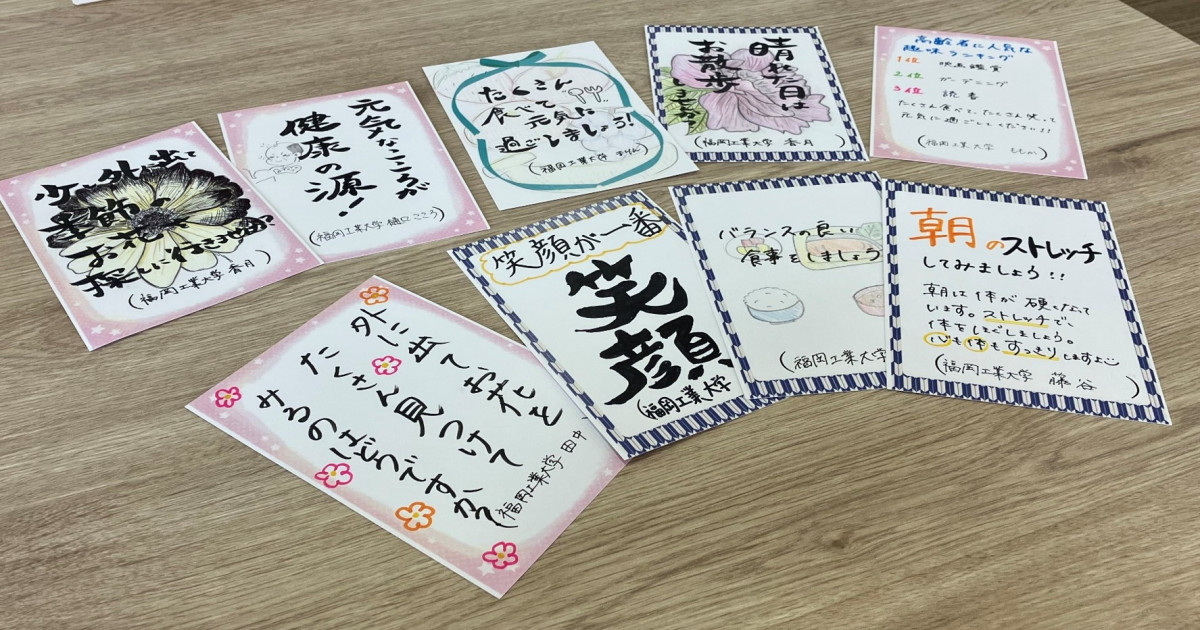 少し外出て
季節の
お花を
探しに行きませんか?
(福岡工業大学 香月)
元気なこころが
健康の源!!
(福岡工業大学 樋口 こころ)
たくさん
食べて
元気に
過ごしましょう!
(福岡工業大学 まりん)
晴れた日は
お散歩
しませんか?
(福岡工業大学 香月)
高齢者に人気な
趣味ランキング
1位 映画鑑賞
2位 ガーデニング
3位 読書
たくさん食べて、たくさん笑って
元気に過ごしてください!!
(福岡工業大学 ももか)
外に出て、お花を
たくさん見つけて
みるのはどうですか?
(福岡工業大学 田中
笑顔が一番
笑顔
(福岡工業大学
バランスの良い
食事をしましょう
(福岡工業大学
朝のストレッチ
してみましょう!!
朝は体が硬くなって
います。ストレッチで、
体をほぐしましょう。
心も体もすっきりしますよ
(福岡工業大学 藤谷)